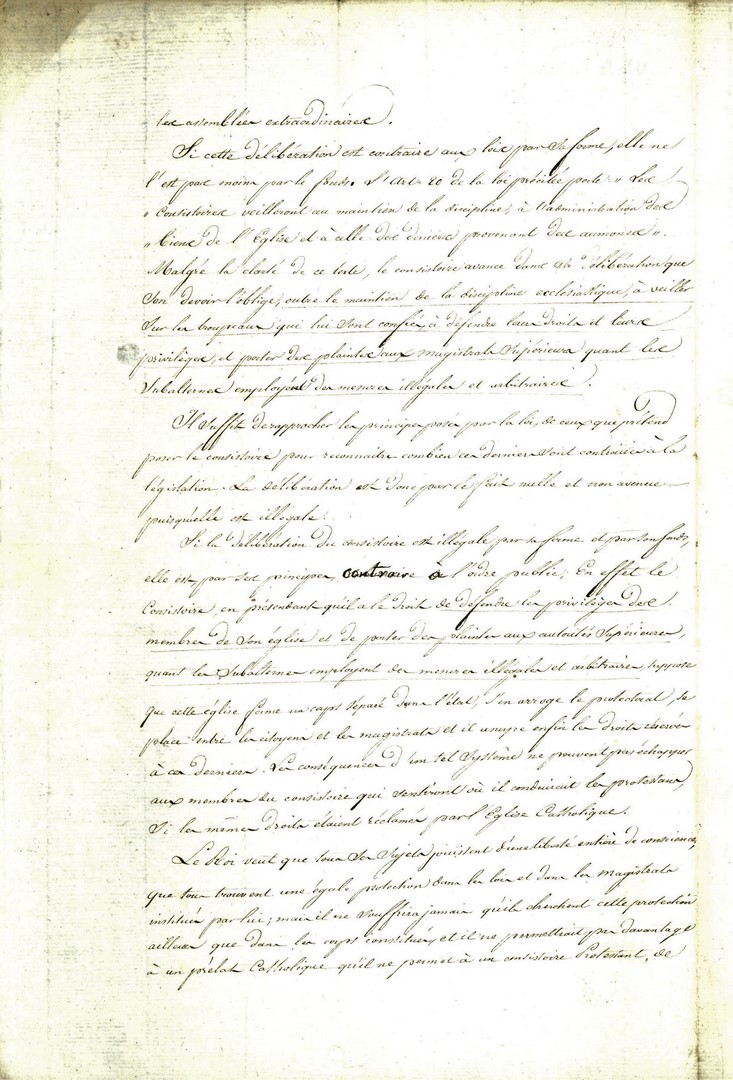 les assemblées extraordinaires.
Si cette délibération est contraire aux lois par sa forme, elle ne
l'est pas moins par le fonds. L'Art. 20 de la loi précitée porte : " Les
" Consistoires veilleront au maintien de la discipline, à l'administration des
" biens de l'Eglise et à celle des deniers provenant des aumones ".
Malgré la clarté de ce texte, le consistoire avance dans sa délibération que
son devoir l'oblige, outre le maintien de la discipline ecclésiastique, à veiller
sur les troupeaux qui lui sont confiés, à défendre leurs droits et leurs
privilèges, et porter des plaintes aux magistrats supérieurs quant les
subalternes employent des mesures illégales et arbitraires.
Il suffit de rapprocher les principes posés par la loi, de ceux que prétend
poser le consistoire pour reconnaitre combien ces derniers sont contraires à la
législation. La délibération est donc par le fait nulle et non avenue
puisqu'elle est illégale.
Si la délibération du consistoire est illégale par sa forme et par son fonds,
elle est, par ses principes, contraire à l'ordre public ; En effet le
Consistoire, en prétendant qu'il a le droit de défendre les privilèges des
membres de son église et de porter des plaintes aux autorités supérieures,
quant les subalternes employent des mesures illégales et arbitraires, suppose
que cette église forme un corps séparé dans l'état, s'en arroge le protectorat, se
place entre les citoyens et les magistrats et il usurpe enfin les droits réservés
à ces derniers. Les conséquences d'un tel système ne peuvent pas échapper
aux membres du consistoire qui sentiront où il conduirait les protestans,
si les mêmes droits étaient réclamés par l'Eglise Catholique.
Le Roi veut que tous ses sujets jouissent d'une liberté entière de conscience,
que tous trouvent une égale protection dans les lois et dans les magistrats
institués par lui ; mais il ne souffrira jamais qu'ils cherchent cette protection
ailleurs que dans les corps constitués, et il ne permettrait pas davantage
à un prélat Catholique qu'il ne permet à un consistoire Protestant, de